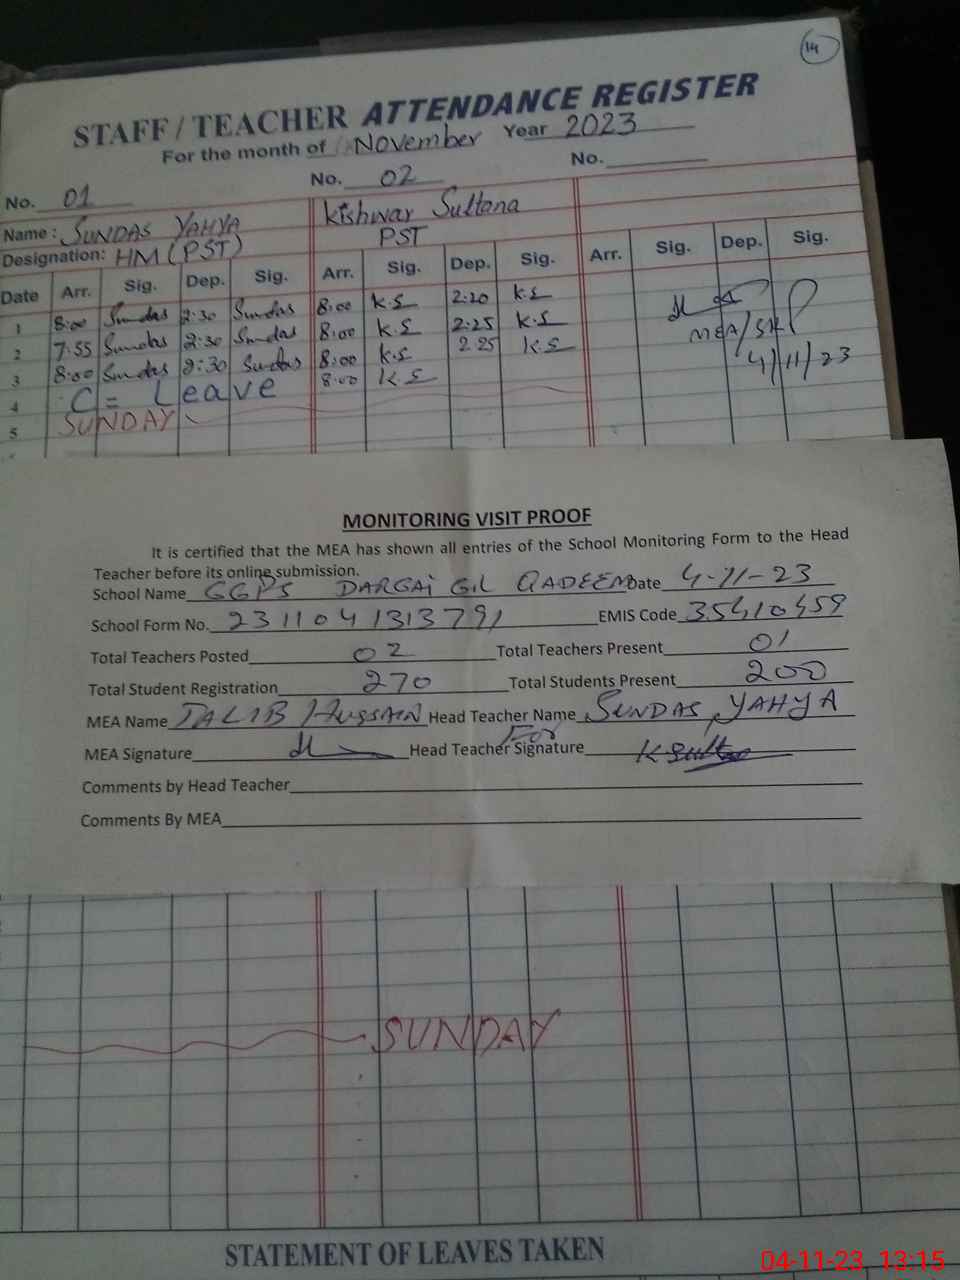 14
STAFF/TEACHER ATTENDANCE REGISTER
For the month of November Year 2023
No. 01 No. 02 No.
Name: SUNDAS YAHYA Kishwar Sultana
Designation: HM (PST) PST
Date Arr. Sig. Dep. Sig. Arr. Sig. Dep. Sig. Arr. Sig. Dep. Sig.
1 8:00 Sundas 2:30 Sundas 8:00 K.S 2:20 K.S
2 7:55 Sundas 2:30 Sundas 8:00 K.S 2:25 K.S MEA/
3 8:00 Sundas 2:30 Sundas 8:00 K.S 2:25 K.S 4/11/23
4 C = Leave 8:00 K.S
5 SUNDAY
MONITORING VISIT PROOF
It is certified that the MEA has shown all entries of the School Monitoring Form to the Head
Teacher before its online submission.
School Name GGPS DARGAI GIL QADEEM Date 4-11-23
School Form No. 2311041313791 EMIS Code 35410459
Total Teachers Posted 02 Total Teachers Present 01
Total Student Registration 270 Total Students Present 200
MEA Name TALIB HUSSAIN Head Teacher Name SUNDAS YAHYA
For
MEA Signature Head Teacher Signature K Sultana
Comments by Head Teacher
Comments By MEA
SUNDAY
STATEMENT OF LEAVES TAKEN
04-11-23 13:15